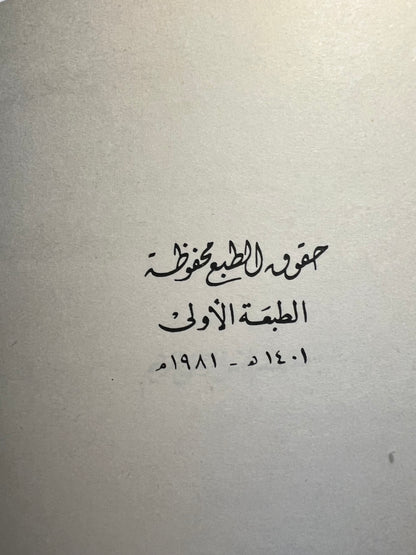 حقوق الطبع محفوظة
الطبعة الأولى
١٤٠١ هـ - ١٩٨١ م